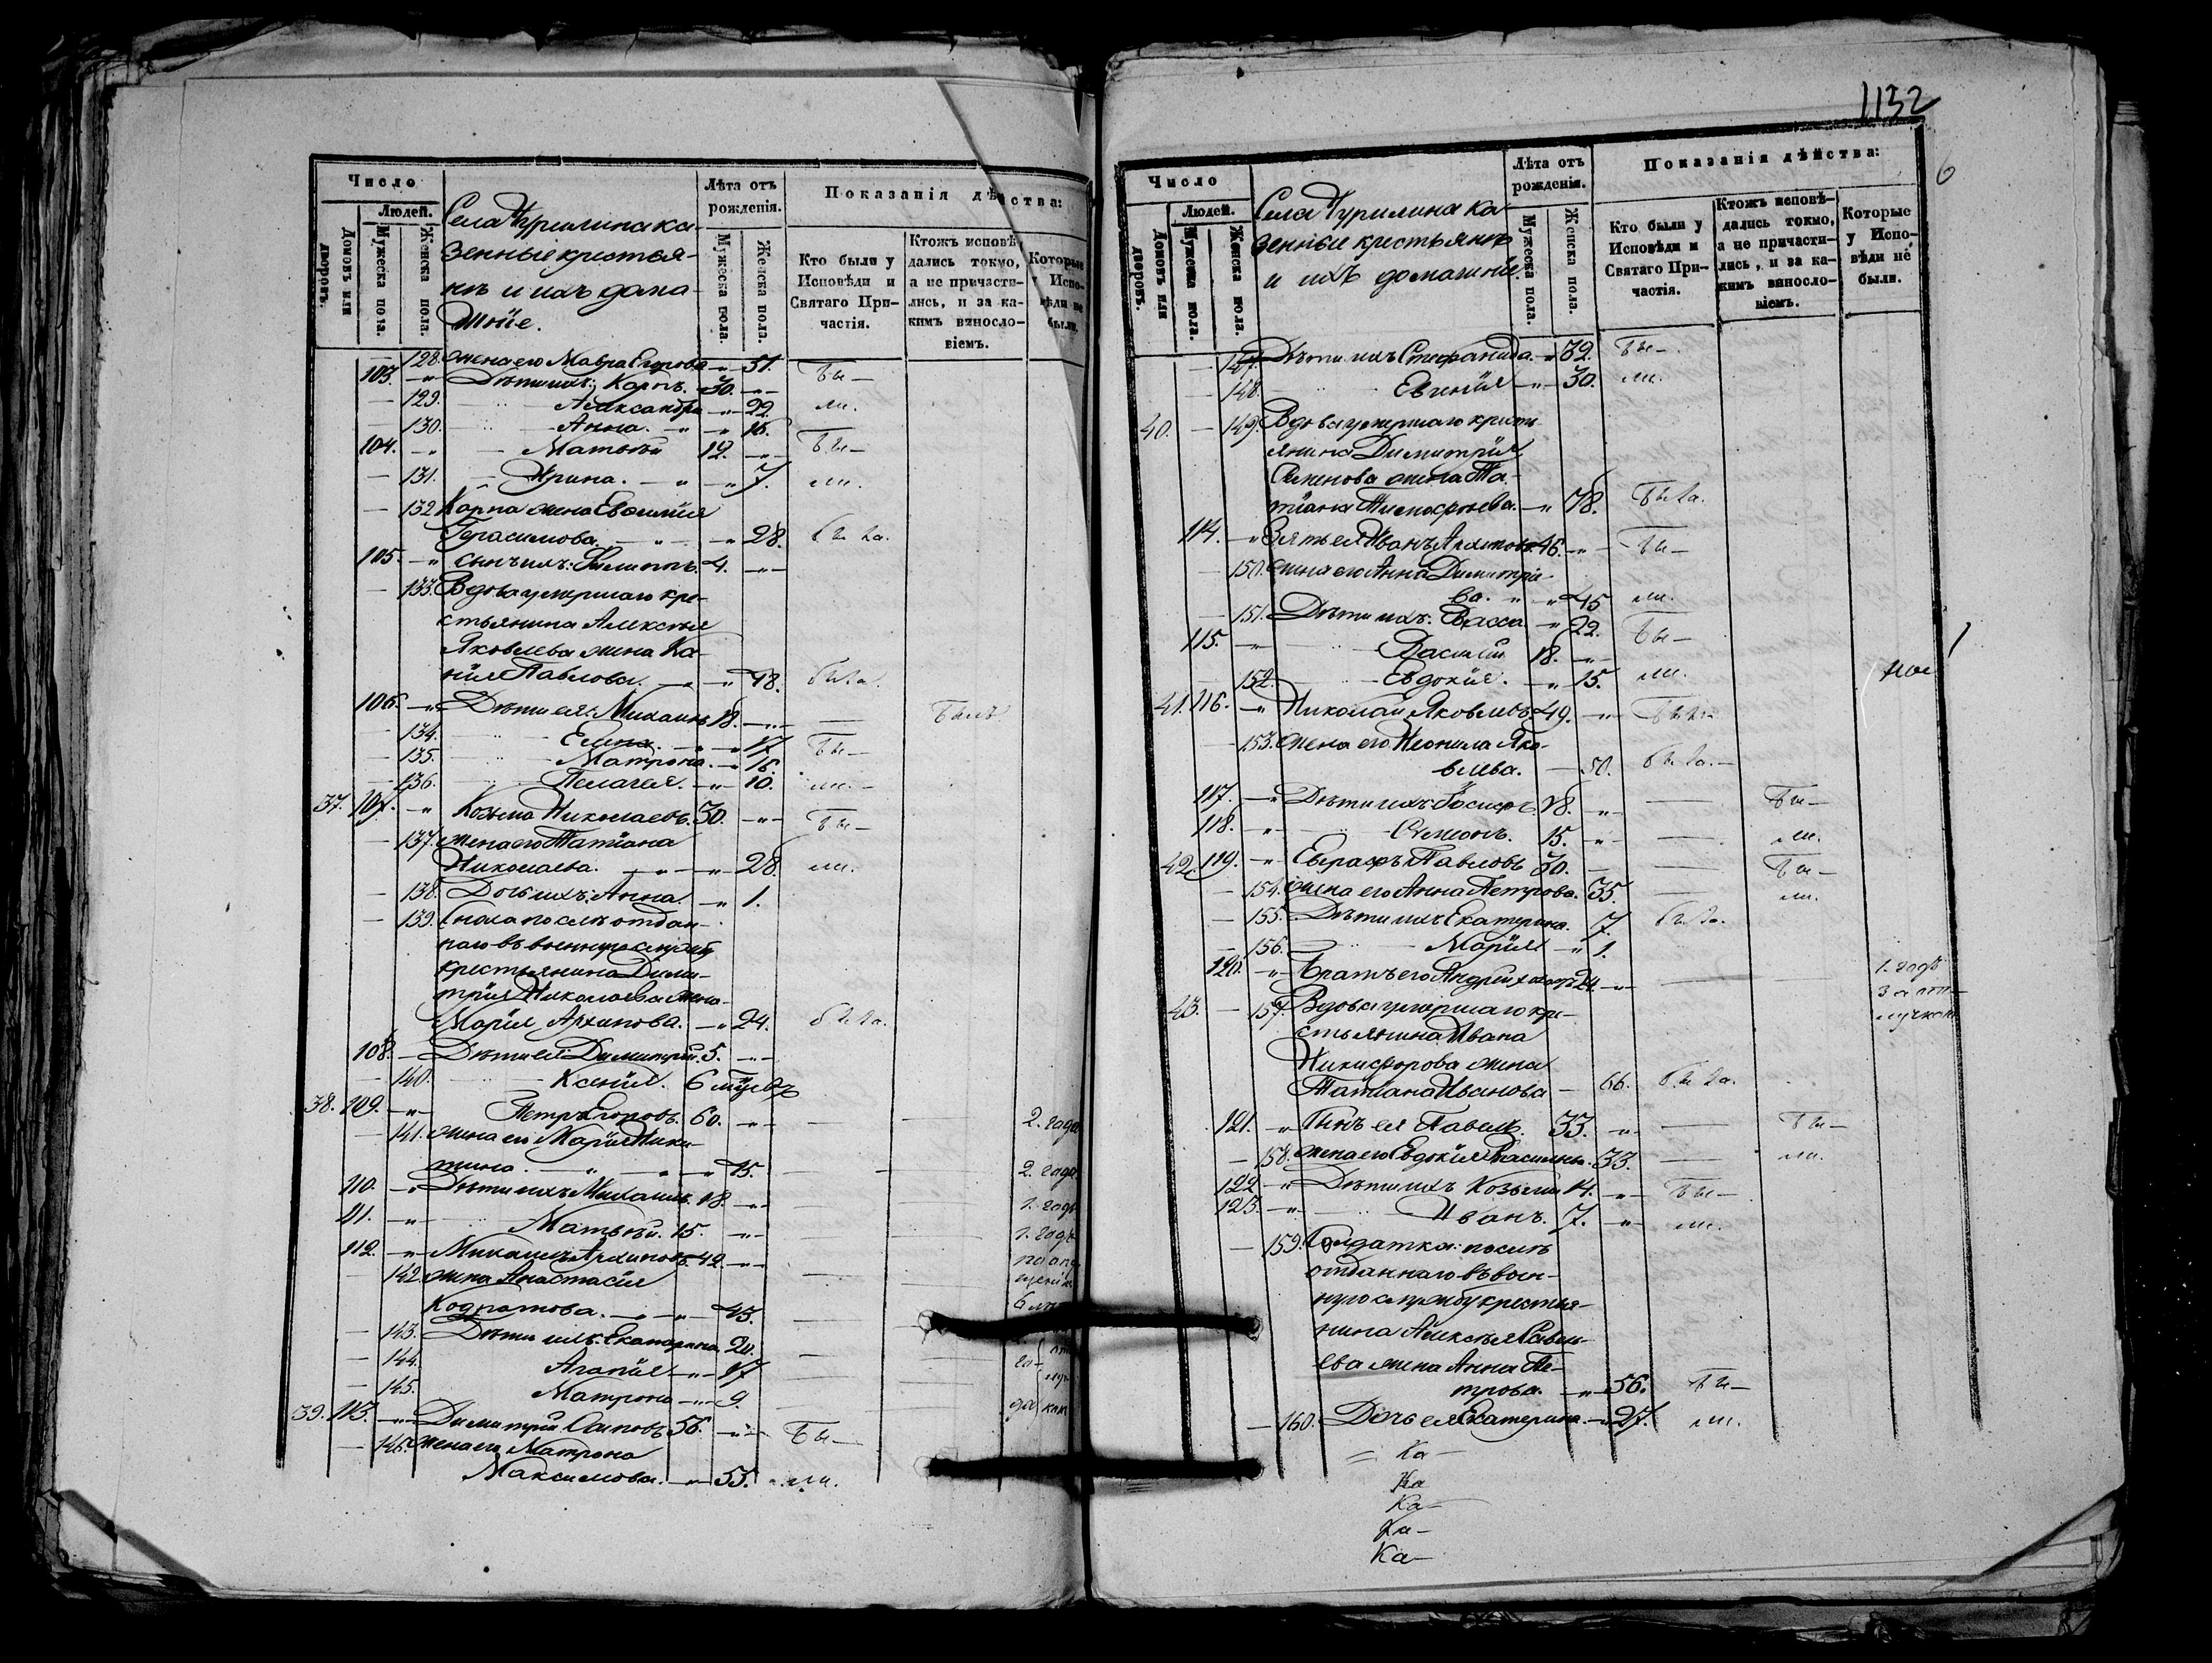 Число
Людей.
Домовъ или дворовъ.
Мужеска пола.
Женска пола.
Села Чурилина ка-
зенные крестья-
нѣ и ихъ дома-
шніе.
Лѣта отъ рожденія.
Мужеска пола.
Женска пола.
Показанія дѣйства:
Кто были у Исповѣди и Святаго Причастія.
Ктожъ исповѣдались токмо, а не причастились, и за какимъ винословіемъ.
Которые у Исповѣди не были.
— 128. жена его Мавра Егорова — „ — 51. Бы—
103. — „ Дѣти ихъ: Карпъ. 30. — „ —
— 129. Александра — „ — 22. ли.
— 130. Анна. — „ — „ 16.
104. — „ — Матвѣй 12. — „ — Бы—
— 131. — Ирина. — „ — „ 7. ли.
— 132. Карпа жена Евфимія
Герасимова. — „ — „ 28. была.
105. — „ сынъ ихъ: Филиппъ. 4. — „ —
— 133. Вдова умершаго кре-
стьянина Алексѣя
Яковлева жена
Павлова. — „ — „ 48. была.
106. — „ Дѣти ея: Михаилъ 18. — „ — — Былъ
— 134. Елена. — „ — „ 17. Бы—
— 135. Матрона. — „ 16.
— 136. Пелагея. — „ 10. ли. —
37. 107. — „ Козьма Николаевъ. 30. — „ — Бы—
— 137. жена его Татіана
Николаева. — „ — „ 28. ли.
— 138. Дочь ихъ: Анна. — „ 1.
— 139. Сноха послѣ отдан-
наго въ военную службу
крестьянина Дими-
трія Николаева жена
Марія Архипова. — „ 24. была.
108. — Дѣти ея: Димитрій. 5. — „ —
— 140. Ксенія. 6 мѣсяцъ
38. 109. — „ — Петръ Егоровъ. 60. — „ — — — 2. года
— 141. жена его Марія Ники-
тина. — „ — „ — 45. — — 2. года
110. — „ Дѣти ихъ: Михаилъ. 18. — „ — 1. годъ
111. — „ — Матвѣй. 15. — „ — 1. годъ
112. — „ — Михаилъ Архиповъ 42. — „ —
— 142. жена Анастасія
Кодратова. — „ — „ — 43. —
— 143. Дѣти ихъ: Екатерина. 20. —
— 144. Агапія — „ — 17. — го-
— 145. Матрона — „ — 9. — да
39. 113. — „ — Димитрій Осиповъ 56. — „ — Бы—
— 146. жена его Матрона
Максимова. — „ — 55. ли.
1132
6
Число
Людей.
Домовъ или дворовъ.
Мужеска пола.
Женска пола.
Села Чурилина ка-
зенные крестьянѣ
и ихъ домашніе.
Лѣта отъ рожденія.
Мужеска пола.
Женска пола.
Показанія дѣйства:
Кто были у Исповѣди и Святаго Причастія.
Ктожъ исповѣдались токмо, а не причастились, и за какимъ винословіемъ.
Которые у Исповѣди не были.
— 147. Дѣти ихъ Стефанида. — „ 32. Бы—
— 148. Евгенія — „ — 30. ли.
40. — 149. Вдова умершаго кресть-
янина Димитрія
Семенова жена Та-
тіана Тимофѣева. — „ 78. Была.
114. — „ Зять ея Иванъ Архиповъ 46. — „ — Бы—
— 150. жена его Анна Димитріе-
ва. „ — „ 45 ли.
— 151. Дѣти ихъ: Васса — „ 22. Бы—
115. — „ Василій 18. — „ —
— 152. Евдокія. — „ 15. ли.
41. 116. — „ Николай Яковлевъ 49. — „ — Былъ
— 153. жена его Неонила Яко-
влева. — 50. была. —
117. — „ Дѣти ихъ: Іосифъ. 18. „ — — Бы—
118. — „ — Симеонъ. 15. „ — — ли.
42. 119. — „ Евграфъ Павловъ 30. — — Бы—
— 154. жена его Анна Петрова. 35. — ли.
— 155. Дѣти ихъ Екатерина. 7. была.
— 156. Марія — „ 1.
120. — „ — Братъ его Андрей 24. — „ — — — 1. годъ
за от-
лучкою
43. — 157. Вдова умершаго кре-
стьянина Ивана
Никифорова жена
Татіана Иванова — 66. Была.
121. — „ Сынъ ея Павелъ. 33. — „ — — Бы—
— 158. жена его Евдокія Васильева. 33. — ли.
122. — „ Дѣти ихъ Козьма 14. — „ — Бы—
123. — „ Иванъ. 7. — „ — ли.
— 159. Солдатка: послѣ
отданнаго въ воен-
ную службу крестья-
нина Алексѣя Савель-
ева жена Анна Пе-
трова. — „ — 56. Бы—
— 160. Дочь ея Екатерина. — „ 27. ли.
— Ка—
Ка
Ка—
Ка—
Ка—